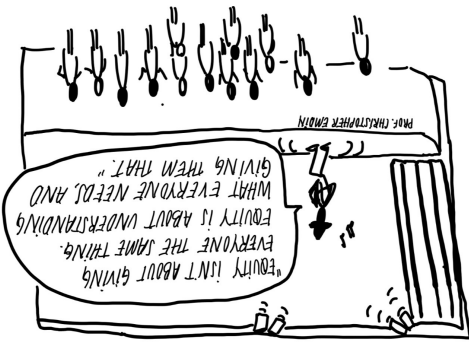 "EQUITY ISN'T ABOUT GIVING
EVERYONE THE SAME THING.
EQUITY IS ABOUT UNDERSTANDING
WHAT EVERYONE NEEDS, AND
GIVING THEM THAT."
PROF. CHRISTOPHER EMDIN